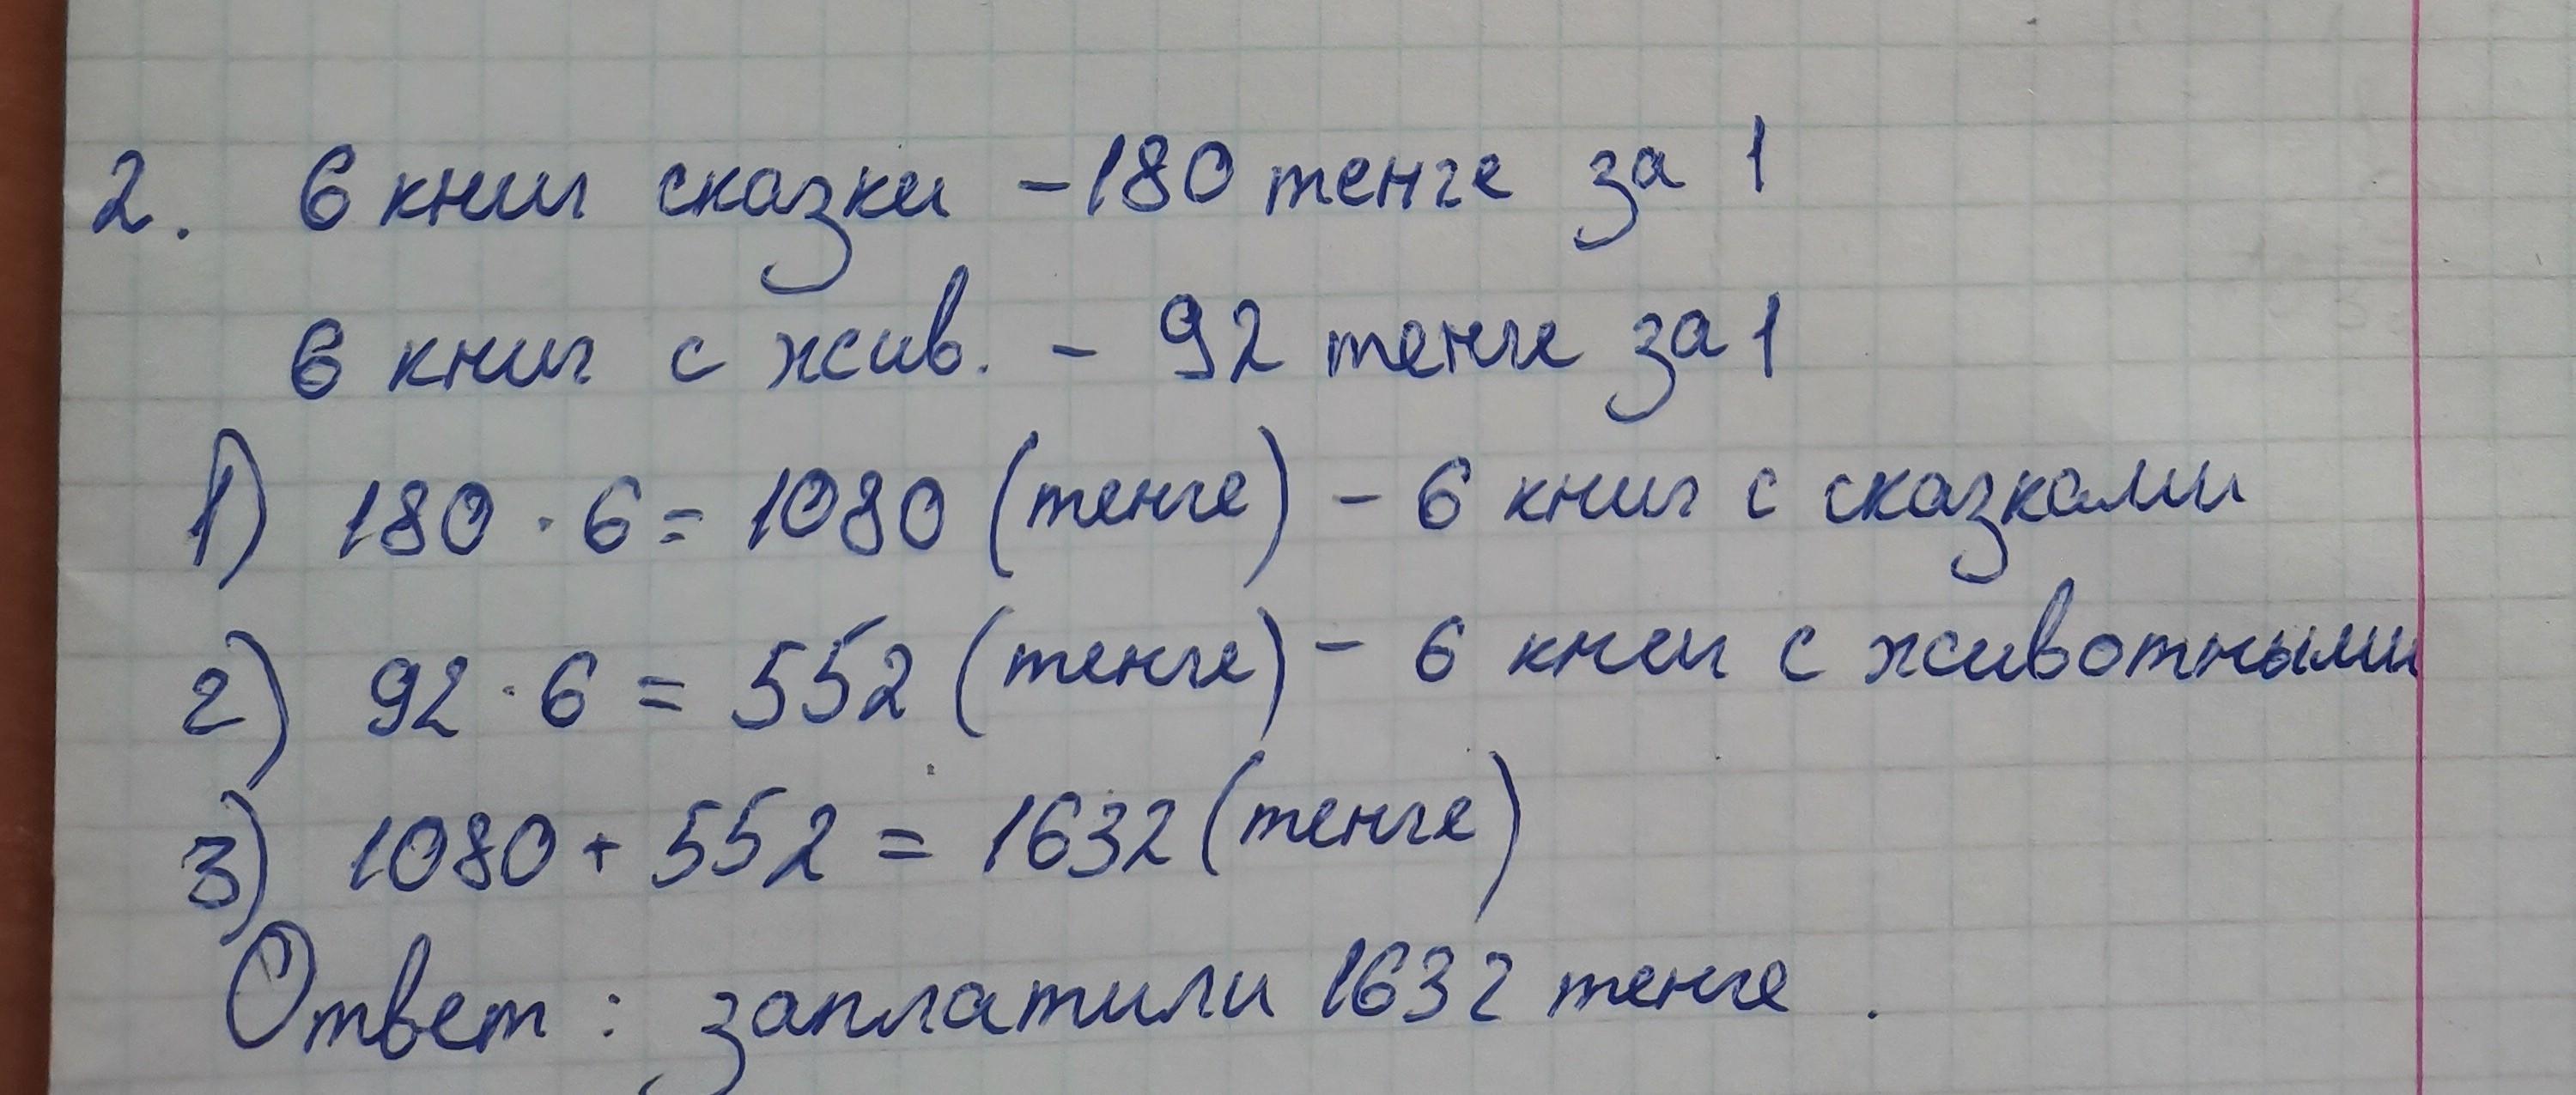 2. 6 книг сказки - 180 тенге за 1
6 книг с жив. - 92 тенге за 1
1) 180 · 6 = 1080 (тенге) - 6 книг с сказками
2) 92 · 6 = 552 (тенге) - 6 книг с животными
3) 1080 + 552 = 1632 (тенге)
Ответ : заплатили 1632 тенге .